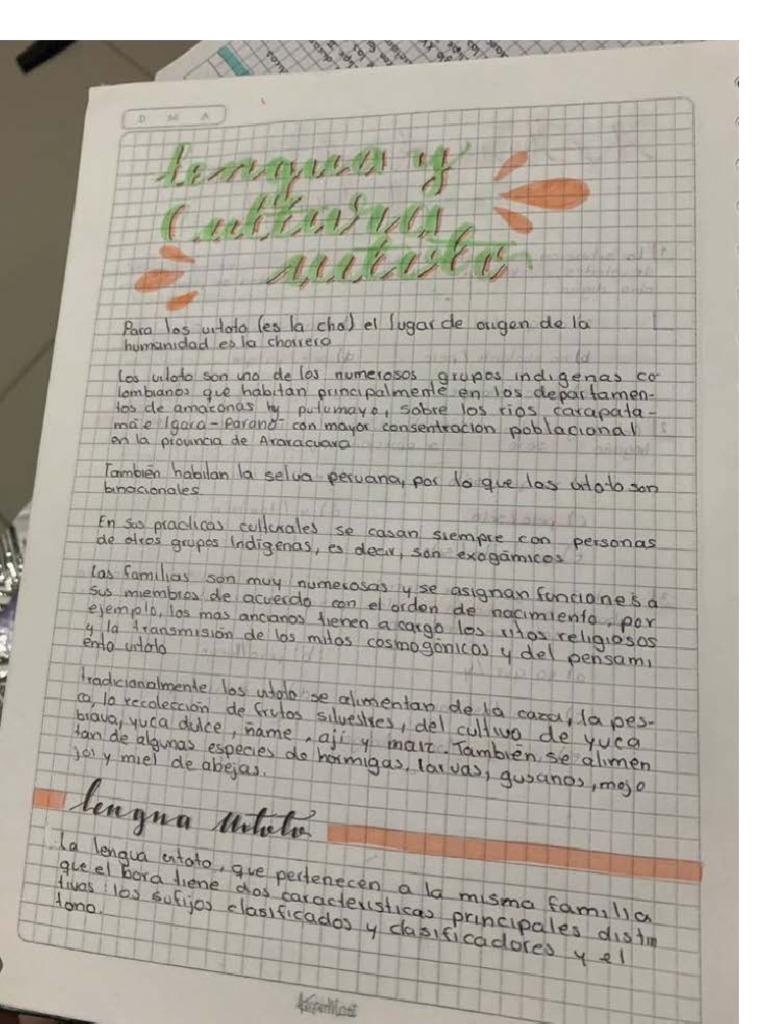 D M A
Lengua y
Cultura
uitoto
Para los uitoto (es la cha) el lugar de origen de la
humanidad es la chorrero
Los uitoto son uno de los numerosos grupos indigenas co
lombianos que habitan principalmente en los departamen-
tos de amazonas y putumayo, sobre los rios carapata-
ma e Igara-Paraná con mayor consentracion poblacional
en la provincia de Araracuara
También habitan la selva peruana, por lo que los uitoto son
binacionales
En sus practicas culturales se casan siempre con personas
de otros grupos Indigenas, es decir, son exogámicos
Las familias son muy numerosas y se asignan funciones a
sus miembros de acuerdo con el orden de nacimiento, por
ejemplo, los mas ancianos tienen a cargo los ritos religiosos
y la transmisión de los mitos cosmogónicos y del pensami
ento uitoto
tradicionalmente los uitoto se alimentan de la caza, la pes-
ca, la recolección de frutos silvestres, del cultivo de yuca
brava, yuca dulce, ñame, ají y maiz. También se alimen
tan de algunas especies de hormigas, larvas, gusanos, mojo
joi y miel de abejas.
lengua uitoto
La lengua uitoto, que pertenecen a la misma familia
que el bora tiene dos caracteristicas principales distin
tivas: los sufijos clasificados y clasificadores y el
tono.